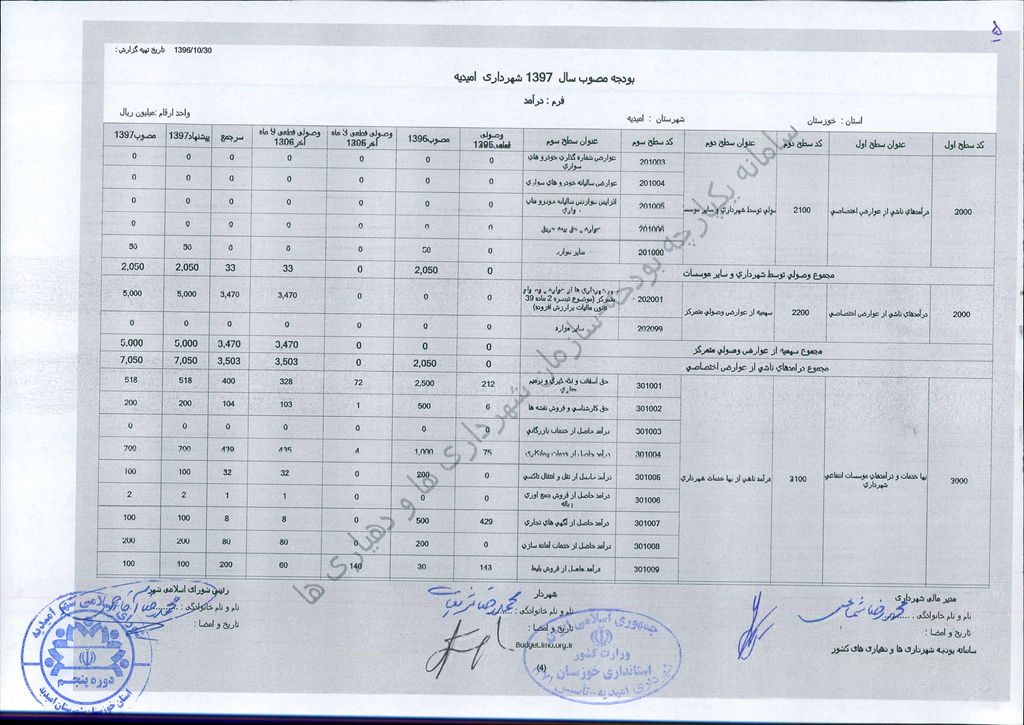 ۵
تاریخ تهیه گزارش : 1396/10/30
بودجه مصوب سال 1397 شهرداری امیدیه
فرم : درآمد
استان : خوزستان شهرستان : امیدیه واحد ارقام :میلیون ریال
کد سطح اول عنوان سطح اول کد سطح دوم عنوان سطح دوم کد سطح سوم عنوان سطح سوم وصولی قطعی 1395 مصوب1396 وصولی قطعی 3 ماه آخر1395 وصولی قطعی 9 ماه آخر1396 سرجمع پیشنهاد1397 مصوب1397
2000 درآمدهای ناشی از عوارض اختصاصی 2100 وصولی توسط شهرداری و سایر موسسات
201003 عوارض شماره گذاری خودرو های سواری 0 0 0 0 0 0 0
201004 عوارض سالیانه خودرو های سواری 0 0 0 0 0 0 0
201005 افزایش عوارض سالیانه خودرو های سواری 0 0 0 0 0 0 0
201006 عوارض حق بیمه حریق 0 0 0 0 0 0 0
سایر موارد 0 50 0 0 0 50 50
مجموع وصولی توسط شهرداری و سایر موسسات 0 2,050 0 33 33 2,050 2,050
2000 درآمدهای ناشی از عوارض اختصاصی 2200 سهمیه از عوارض وصولی متمرکز
202001 سهم شهرداری ها از عوارض وصولی متمرکز (موضوع تبصره 2 ماده 39 قانون مالیات برارزش افزوده) 0 0 0 3,470 3,470 5,000 5,000
202099 سایر موارد 0 0 0 0 0 0 0
مجموع سهمیه از عوارض وصولی متمرکز 0 0 0 3,470 3,470 5,000 5,000
مجموع درآمدهای ناشی از عوارض اختصاصی 0 2,050 0 3,503 3,503 7,050 7,050
3000 بها خدمات و درآمدهای موسسات انتفاعی شهرداری 3100 درآمد ناشی از بها خدمات شهرداری
301001 حق آسفالت و لکه گیری و ترمیم حفاری 212 2,500 72 328 400 518 518
301002 حق کارشناسی و فروش نقشه ها 6 500 1 103 104 200 200
301003 درآمد حاصل از خدمات بازرگانی 0 0 0 0 0 0 0
301004 درآمد حاصل از خدمات پیمانکاری 75 1,000 4 435 439 700 700
301005 درآمد حاصل از نقل و انتقال تاکسی 0 200 0 32 32 100 100
301006 درآمد حاصل از فروش جمع آوری زباله 0 0 0 1 1 2 2
301007 درآمد حاصل از آگهی های تجاری 429 500 0 8 8 100 100
301008 درآمد حاصل از خدمات آماده سازی 0 200 0 80 80 200 200
301009 درآمد حاصل از فروش بلیط 143 30 140 60 200 100 100
سامانه یکپارچه بودجه سازمان شهرداری ها و دهیاری ها
مدیر مالی شهرداری شهردار رئیس شورای اسلامی شهر
نام و نام خانوادگی : نام و نام خانوادگی : نام و نام خانوادگی :
تاریخ و امضا : تاریخ و امضا : تاریخ و امضا :
سامانه بودجه شهرداری ها و دهیاری های کشور Budget.imo.org.ir
(4)
جمهوری اسلامی ایران
وزارت کشور
استانداری خوزستان
شهرداری امیدیه-تأسیس
شورای اسلامی شهر امیدیه
دوره پنجم
استان خوزستان شهرستان امیدیه